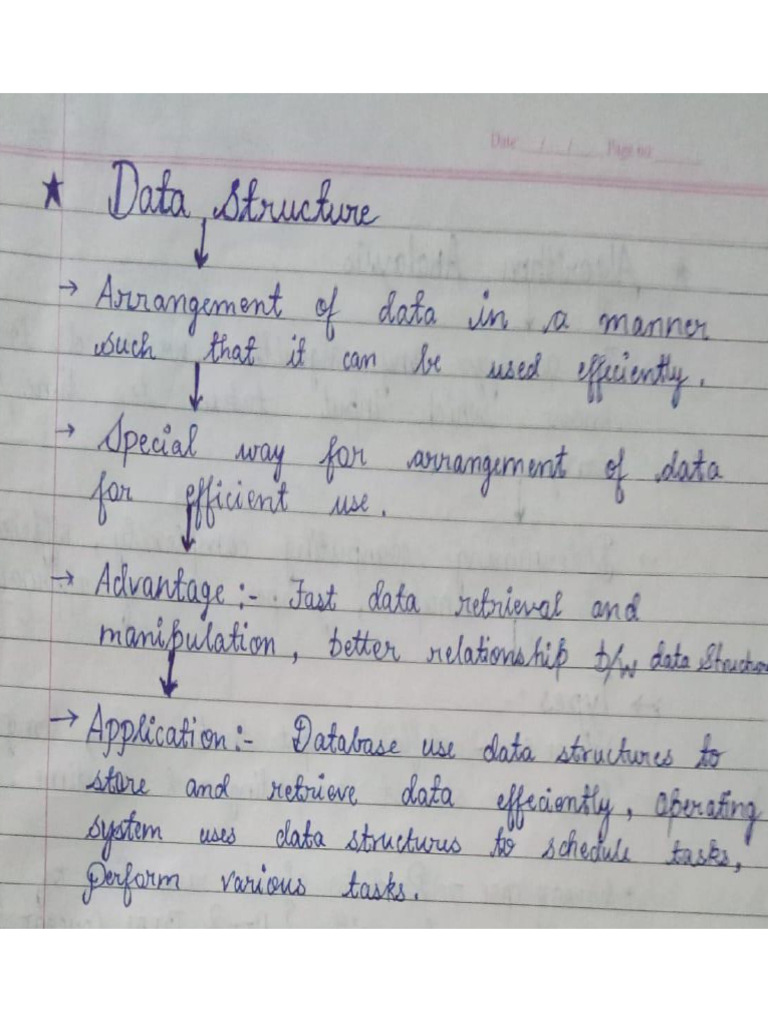 Date / / Page no
★ Data Structure
→ Arrangement of data in a manner
such that it can be used efficiently.
→ Special way for arrangement of data
for efficient use.
→ Advantage:- Fast data retrieval and
manipulation, better relationship b/w data structure
→ Application:- Database use data structures to
store and retrieve data effeciently, operating
system uses data structures to schedule tasks,
Perform various tasks.